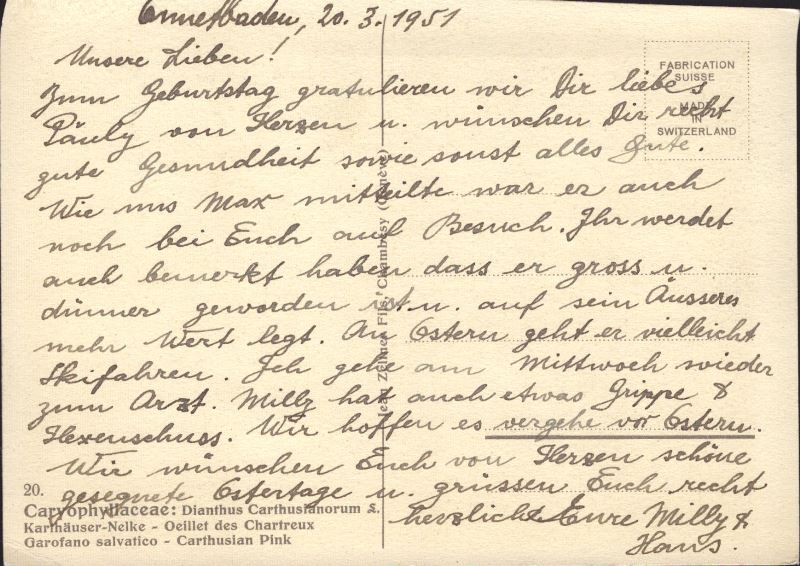 Ennetbaden, 20. 3. 1951
Unsere Lieben!
Zum Geburtstag gratulieren wir Dir liebes
Päuly von Herzen u. wünschen Dir recht
gute Gesundheit sowie sonst alles Gute.
Wie uns Max mitteilte war er auch
noch bei Euch auf Besuch. Ihr werdet
auch bemerkt haben dass er gross u.
dünner geworden ist u. auf sein Äusseres
mehr Wert legt. An Ostern geht er vielleicht
Skifahren. Ich gehe am Mittwoch wieder
zum Arzt. Milly hat auch etwas Grippe &
Hexenschuss. Wir hoffen es vergehe vor Ostern.
Wir wünschen Euch von Herzen schöne
gesegnete Ostertage u. grüssen Euch recht
herzlich Eure Milly &
Hans.
FABRICATION
SUISSE
MADE
IN
SWITZERLAND
Jean Zellner Fils, Chambésy (Genève)
20.
Caryophyllaceae: Dianthus Carthusianorum L.
Karthäuser-Nelke - Oeillet des Chartreux
Garofano salvatico - Carthusian Pink